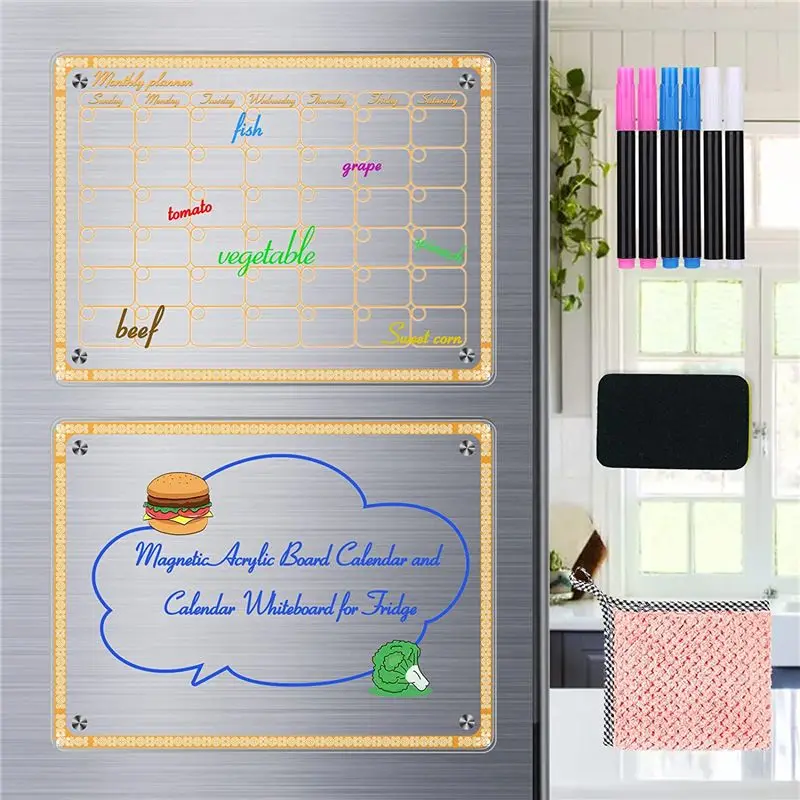 Monthly planner
Sunday Monday Tuesday Wednesday Thursday Friday Saturday
fish
grape
tomato
vegetable
beef
Sweet corn
Magnetic Acrylic Board Calendar and
Calendar Whiteboard for Fridge